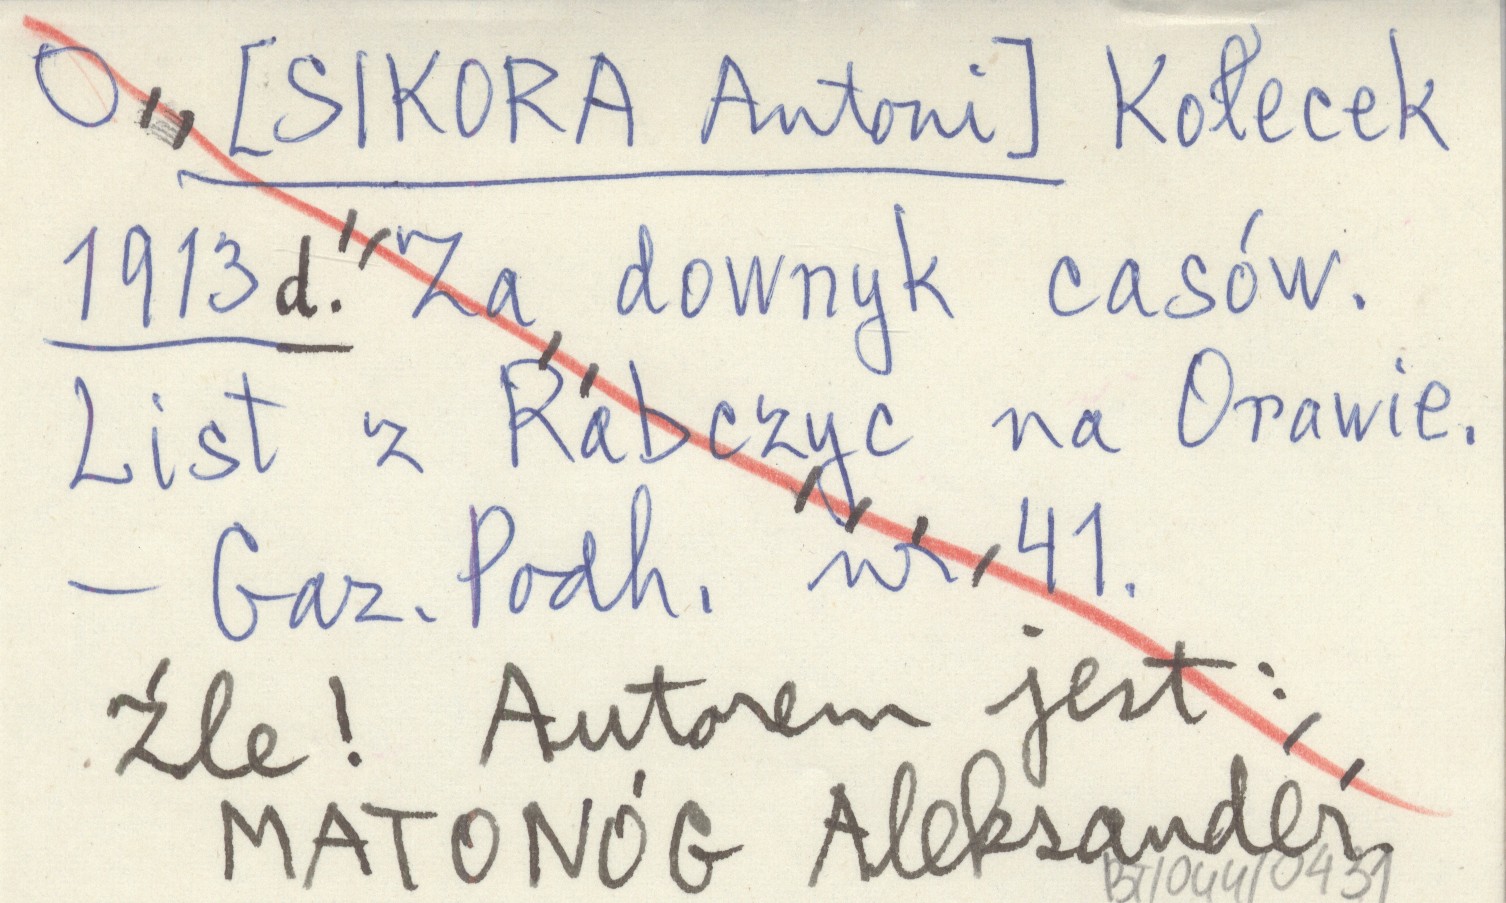 O [SIKORA Antoni] Kołecek
1913d. Za downyk casów.
List z Rabczyc na Orawie.
– Gaz. Podh. nr 41.
Źle! Autorem jest:
MATONÓG Aleksander
BI/044/0431